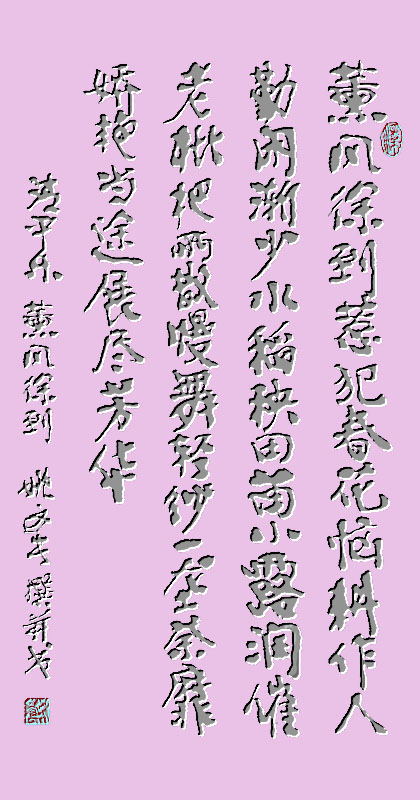 薰风徐到惹犯春花恼耕作人
勤闲渐少水稻秧田雨小露润催
老枇杷雨散慢舞轻纱一座荼靡
娇艳当途展尽芳华
清平乐 薰风徐到 姚 撰并书